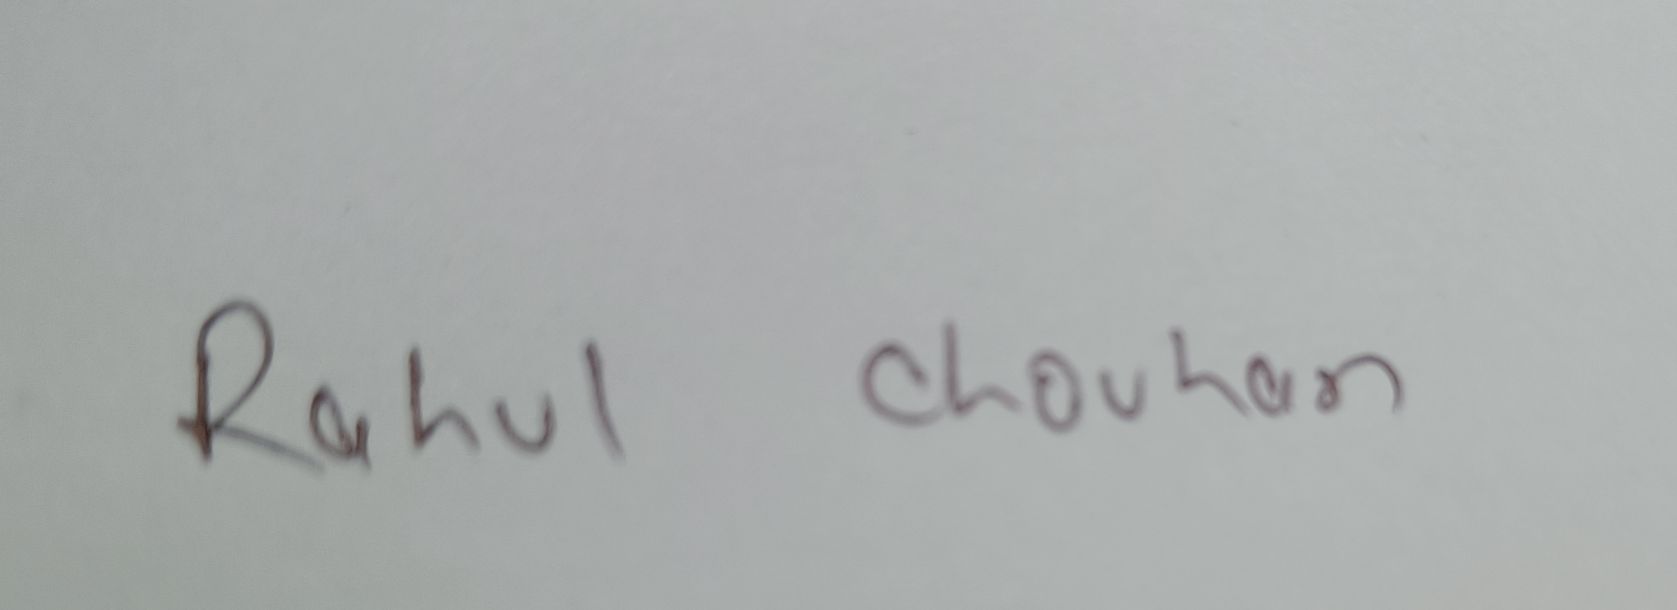 Rahul Chouhan